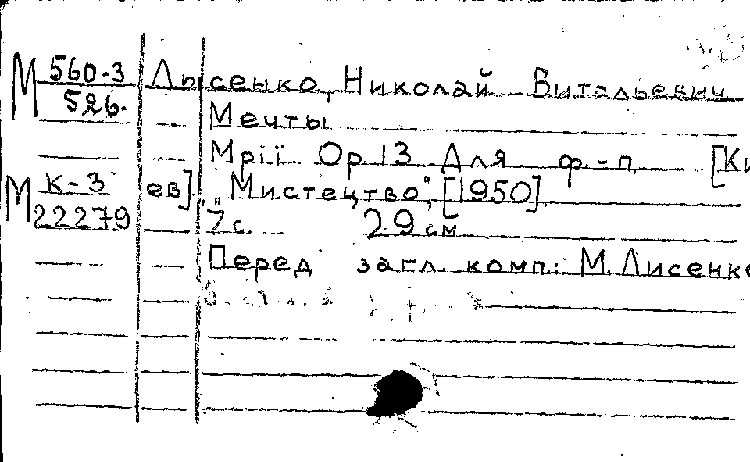 М 560-3 Лысенко, Николай Витальевич
526.
Мечты
Мрії Ор 13 Для ф.-п. [Ки
М к-3 ев] "Мистецтво", [1950]
22279 7 с. 29 см
Перед загл. комп.: М. Лисенко